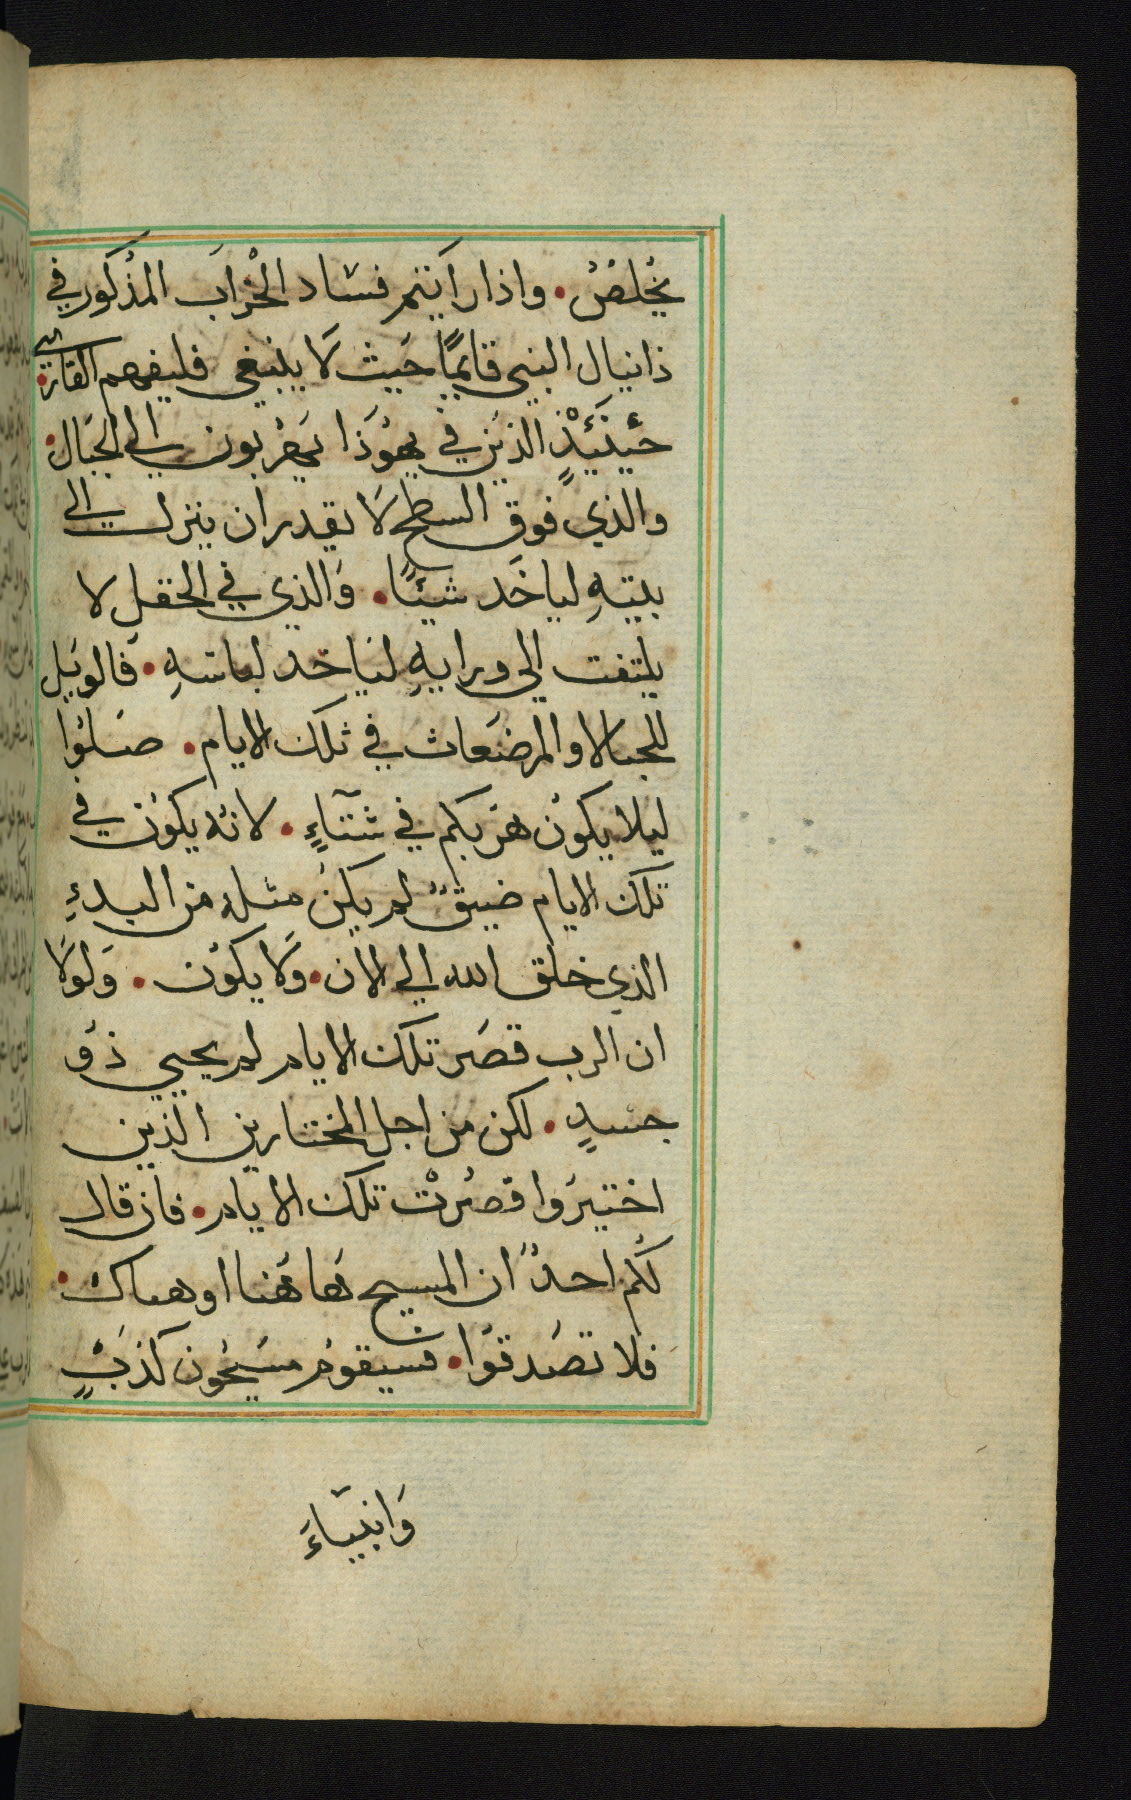 يخْلصُ • واذا رَاَيتم فسَاد الخْرَابَ المذْكور في
ذانيال النبي قايمًا حَيث لَا ينبغي فليفهم القاري •
حيْنَيْذٍ الذين في يهوُذَا يَهرْبون الي الجبَال •
والذي فوق السطح لَا يقدر ان ينزل الي
بيتهِ لياخَد شيئًا • وَالذي في الحقل لا
يلتفت الي ورايهِ لياخد لباسَهِ • فَالويَل
للحبالا والمرضَعات في تلك الايام • صَلوُا
ليلا يكوُن هَربكم في شتآءٍ • لانه يكوُن في
تلك الايام ضيقٌ لم يكنُ مثله من البدءِ
الذي خلق الله الي الان • وَلا يكوُن • وَلولَا
ان الرب قصَر تلك الايام لم يحيي ذوُ
جسدٍ • لكن من اجل المختارين الذين
اختيرَوا قصُرتْ تلك الايام • فان قال
لكُم احدٌ ان المسيح هَا هَنا او هناك •
فلا تصَدقوُا • فسَيقوُم مسَيحُون كذبَةٍ
وَانبيَاءَ